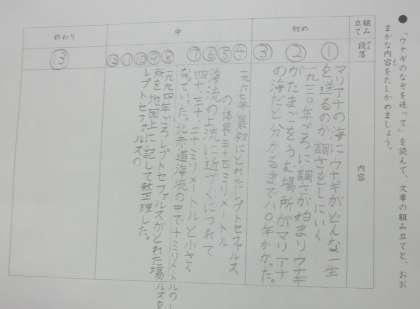 ● 「ウナギのなぞを追って」を読んで、文章の組み立てと、おお
まかな内容をたしかめましょう。
組み立て
段落
内容
初め
①
マリアナの海にウナギがどんな一生
を送るのか調さをしにいく
②
一九三〇年ごろに調さが始まりウナギ
がたまごをうむ場所がマリアナ
③
の海だと分かるまで八〇年かかった。
中
④
一九六七年 最初にとれたレプトセファルス
⑤
の体長 五十四ミリメートル
⑥
海流の上流に近づくにつれて
⑦
四十、三十、二十ミリメートルと小さく
なっていた。北赤道海流の中で十ミリメートルの
⑧
一九九四年ごろレプトセファルスがとれた場
所を地図上に記して整理した。
レプトセファルスの
終わり
③